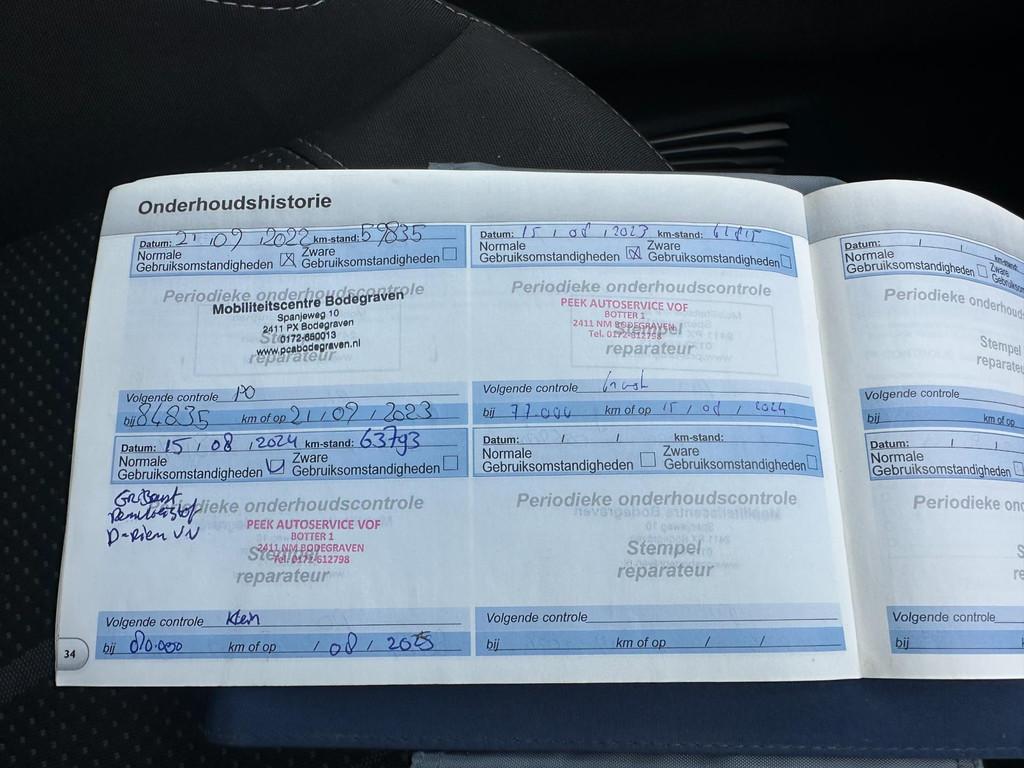 Onderhoudshistorie
Datum: 21 / 09 / 2022 km-stand: 59835
Normale Gebruiksomstandigheden ☒ Zware Gebruiksomstandigheden ☐
Periodieke onderhoudscontrole
Mobiliteitscentre Bodegraven
Spanjeweg 10
2411 PX Bodegraven
0172-650013
www.pcabodegraven.nl
Stempel
reparateur
Volgende controle PO
bij 84835 km of op 21 / 09 / 2023
Datum: 15 / 08 / 2023 km-stand:
Normale Gebruiksomstandigheden ☒ Zware Gebruiksomstandigheden ☐
Periodieke onderhoudscontrole
PEEK AUTOSERVICE VOF
BOTTER 1
2411 NM BODEGRAVEN
Tel. 0172-612798
Stempel
reparateur
Volgende controle
bij 77.000 km of op 15 / 08 / 2024
Datum: 15 / 08 / 2024 km-stand: 63793
Normale Gebruiksomstandigheden ☑ Zware Gebruiksomstandigheden ☐
Periodieke onderhoudscontrole
Gr. Beurt
Remvloeistof
PEEK AUTOSERVICE VOF
BOTTER 1
2411 NM BODEGRAVEN
Tel. 0172-612798
Stempel
reparateur
Volgende controle Klein
bij 80.000 km of op / 08 / 2025
Datum: / / km-stand:
Normale Gebruiksomstandigheden ☐ Zware Gebruiksomstandigheden ☐
Periodieke onderhoudscontrole
Stempel
reparateur
Volgende controle
bij km of op / /
34
Datum: / / km-stand:
Normale Gebruiksomstandigheden ☐ Zware
Periodieke
Stempel
Volgende controle
bij km of op
Datum: / /
Normale
Gebruiksomstandigheden ☐
Periodieke
Volgende controle
bij